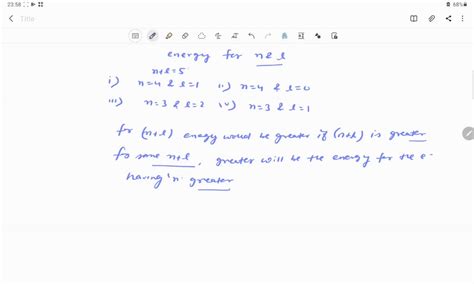 23:58
68%
Title
energy for n & l
n+l=5
i) n=4 & l=1 ii) n=4 & l=0
iii) n=3 & l=2 iv) n=3 & l=1
for (n+l) energy would be greater if (n+l) is greater
for same n+l, greater will be the energy for the e-
having 'n' greater